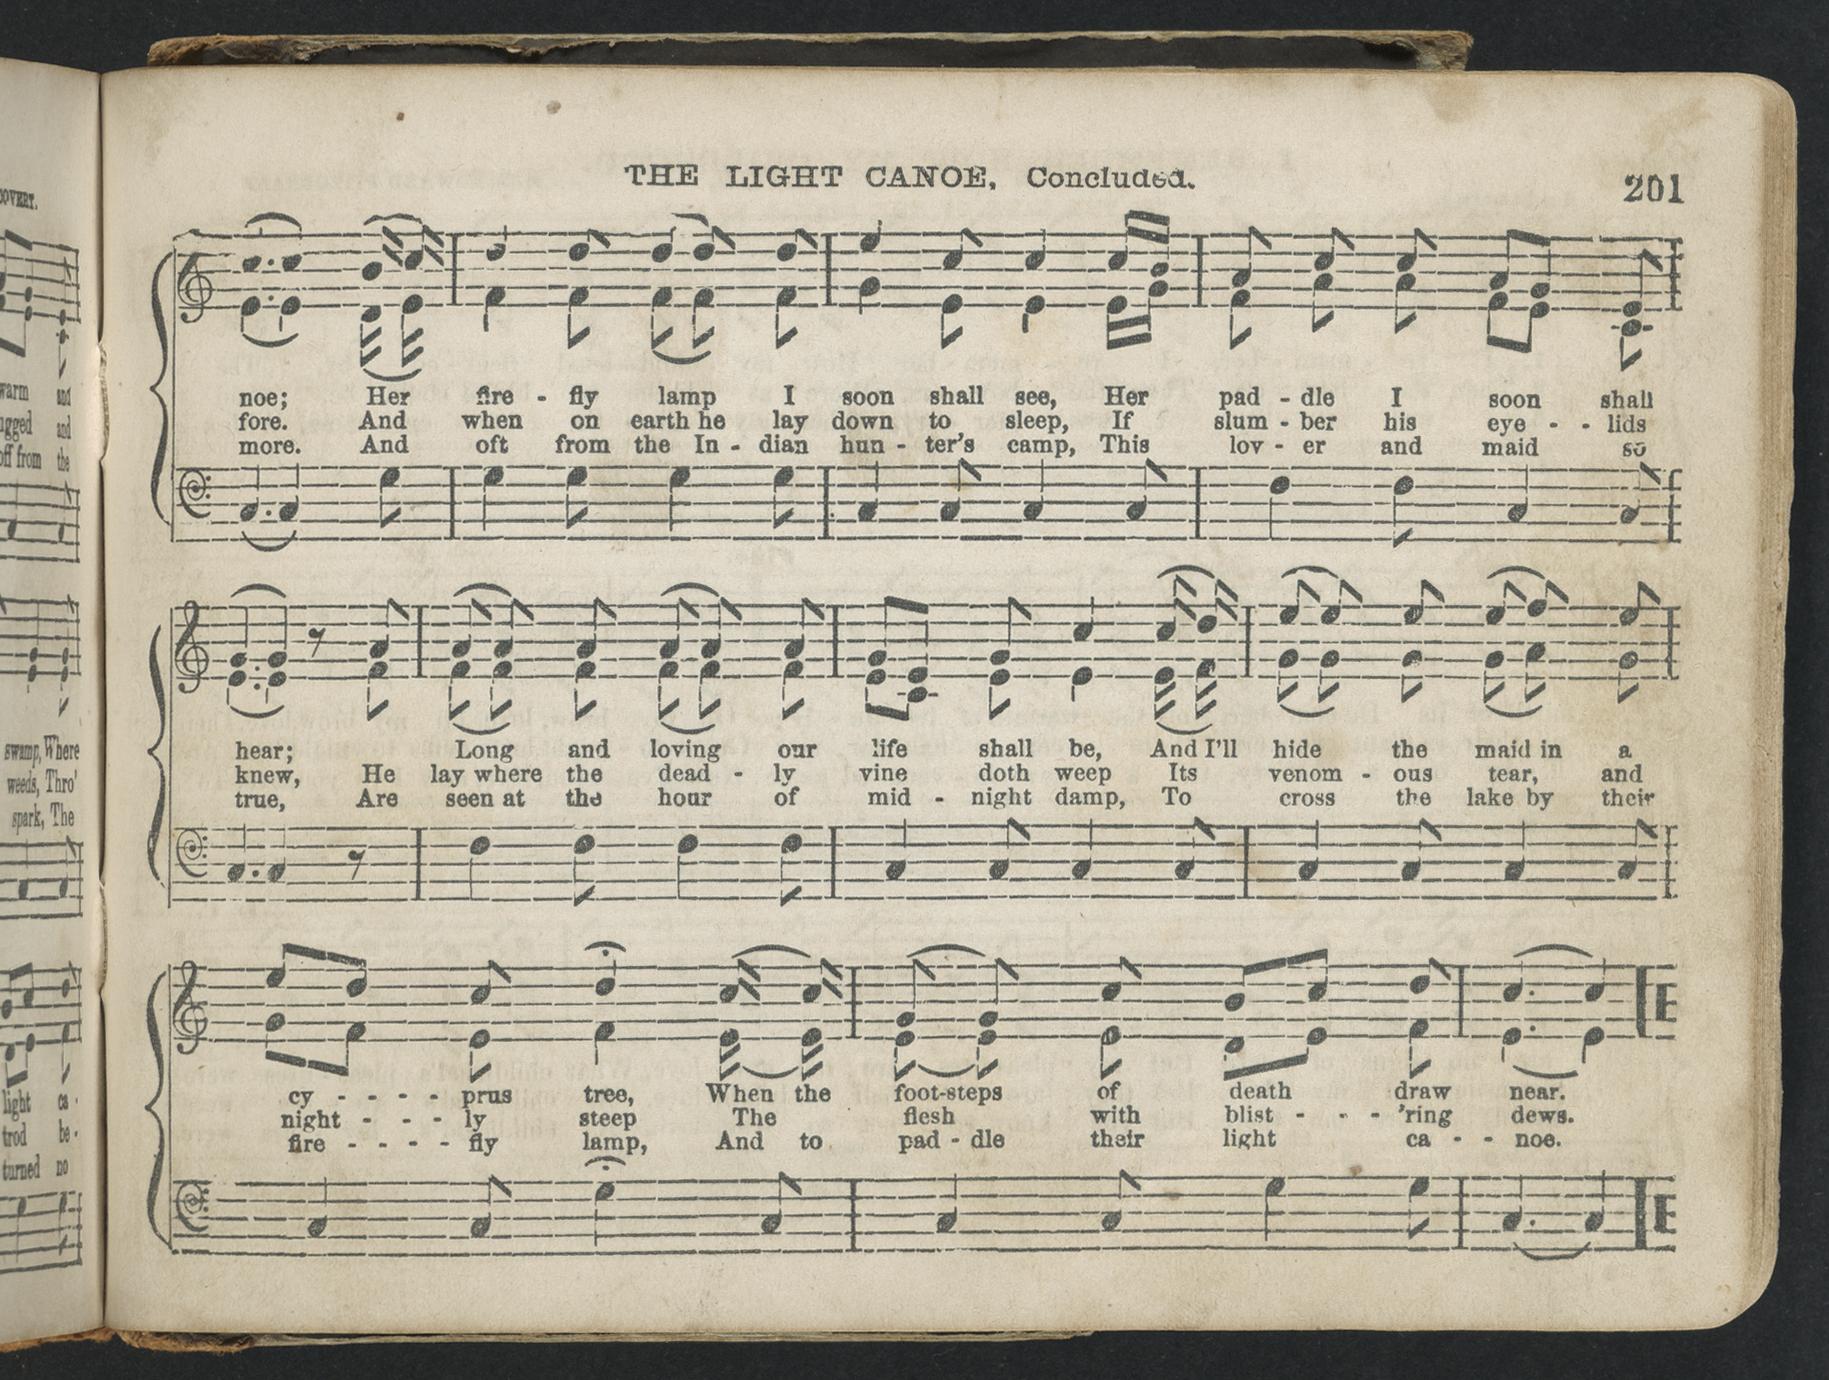 OVERT.
THE LIGHT CANOE, Concluded.
201
warm and
and
off from the
noe; Her fire - fly lamp I soon shall see, Her pad - dle I soon shall
fore. And when on earth he lay down to sleep, If slum - ber his eye - - lids
more. And oft from the In - dian hun - ter's camp, This lov - er and maid so
swamp, Where
weeds, Thro'
spark, The
hear; Long and loving our life shall be, And I'll hide the maid in a
knew, He lay where the dead - ly vine doth weep Its venom - ous tear, and
true, Are seen at the hour of mid - night damp, To cross the lake by their
light ca -
trod be -
turned no
cy - - - - prus tree, When the foot-steps of death draw near.
night - - - ly steep The flesh with blist - - - 'ring dews.
fire - - - - fly lamp, And to pad - dle their light ca - - noe.